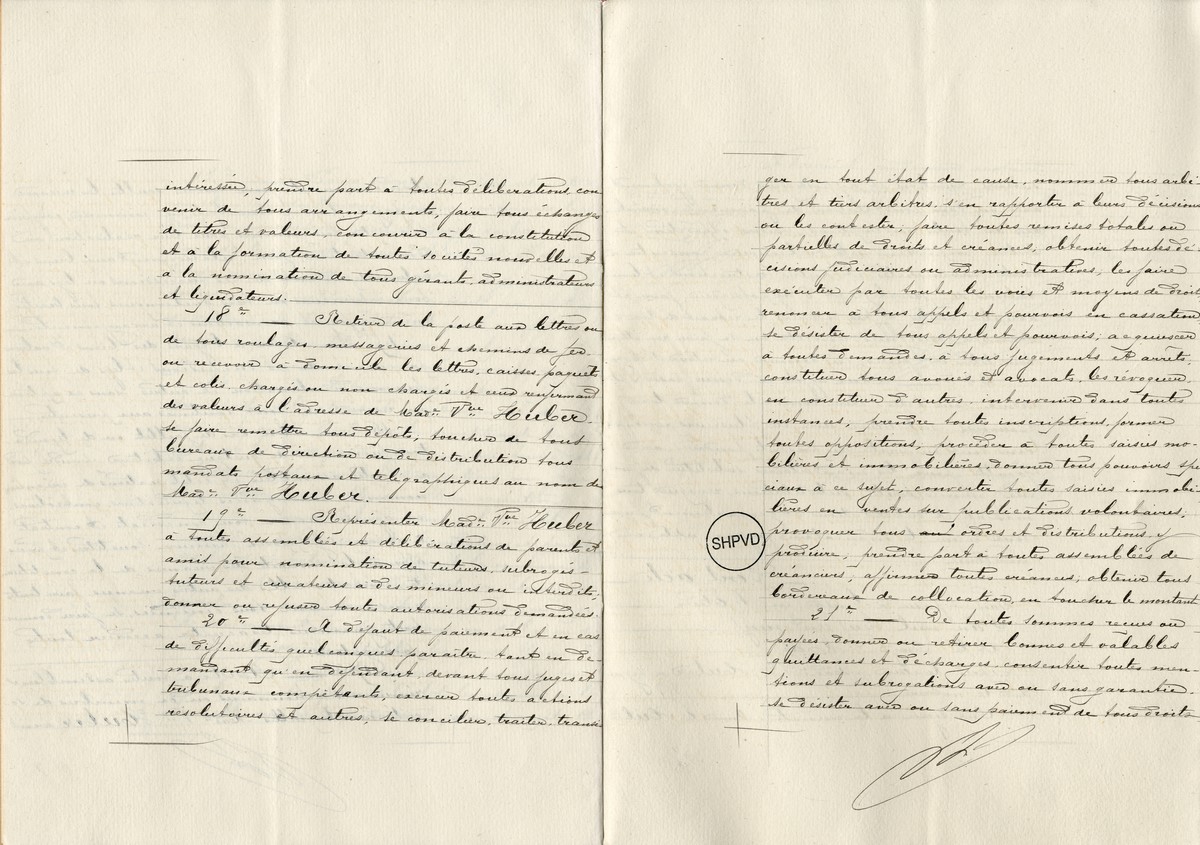 intéressée, prendre part à toutes délibérations, con
venir de tous arrangements, faire tous échanges
de titres et valeurs, concourir à la constitution
et à la formation de toutes sociétés nouvelles et
à la nomination de tous gérants, administrateurs
et liquidateurs.
18° — Retirer de la poste aux lettres ou
de tous roulages, messageries et chemins de fer
ou recevoir à domicile les lettres, caisses, paquets
et colis, chargés ou non chargés et ceux renfermant
des valeurs à l'adresse de Mad.e Vve Huber.
se faire remettre tous dépôts, toucher de tous
bureaux de direction ou de distribution tous
mandats postaux et télégraphiques au nom de
Mad.e Vve Huber.
19° — Représenter Mad.e Vve Huber
à toutes assemblées et délibérations de parents et
amis pour nomination de tuteurs, subrogés-
tuteurs et curateurs à des mineurs ou interdits,
donner ou refuser toutes autorisations demandées.
20° — A défaut de paiement et en cas
de difficultés quelconques paraître tant en de-
mandant qu'en défendant, devant tous juges et
tribunaux compétents, exercer toutes actions
résolutoires et autres, se concilier, traiter, transi
ger en tout état de cause, nommer tous arbi-
tres et tiers arbitres, s'en rapporter à leurs décisions
ou les contester, faire toutes remises totales ou
partielles de droits et créances, obtenir toutes dé-
cisions judiciaires ou administratives, les faire
exécuter par toutes les voies et moyens de droit
renoncer à tous appels et pourvois en cassation
se désister de tous appels et pourvois; acquiescer
à toutes demandes, à tous jugements et arrêts,
constituer tous avoués et avocats, les révoquer,
en constituer d'autres, intervenir dans toutes
instances, prendre toutes inscriptions, former
toutes oppositions, procéder à toutes saisies mo-
bilières et immobilières, donner tous pouvoirs spé
ciaux à ce sujet, convertir toutes saisies immobi-
lières en ventes sur publications volontaires,
provoquer tous ordres et distributions, y
produire, prendre part à toutes assemblées de
créanciers, affirmer toutes créances, obtenir tous
bordereaux de collocation, en toucher le montant
21° — De toutes sommes reçues ou
payées donner ou retirer bonnes et valables
quittances et décharges, consentir toutes men-
tions et subrogations avec ou sans garantie.
se désister avec ou sans paiement de tous droits
SHPVD